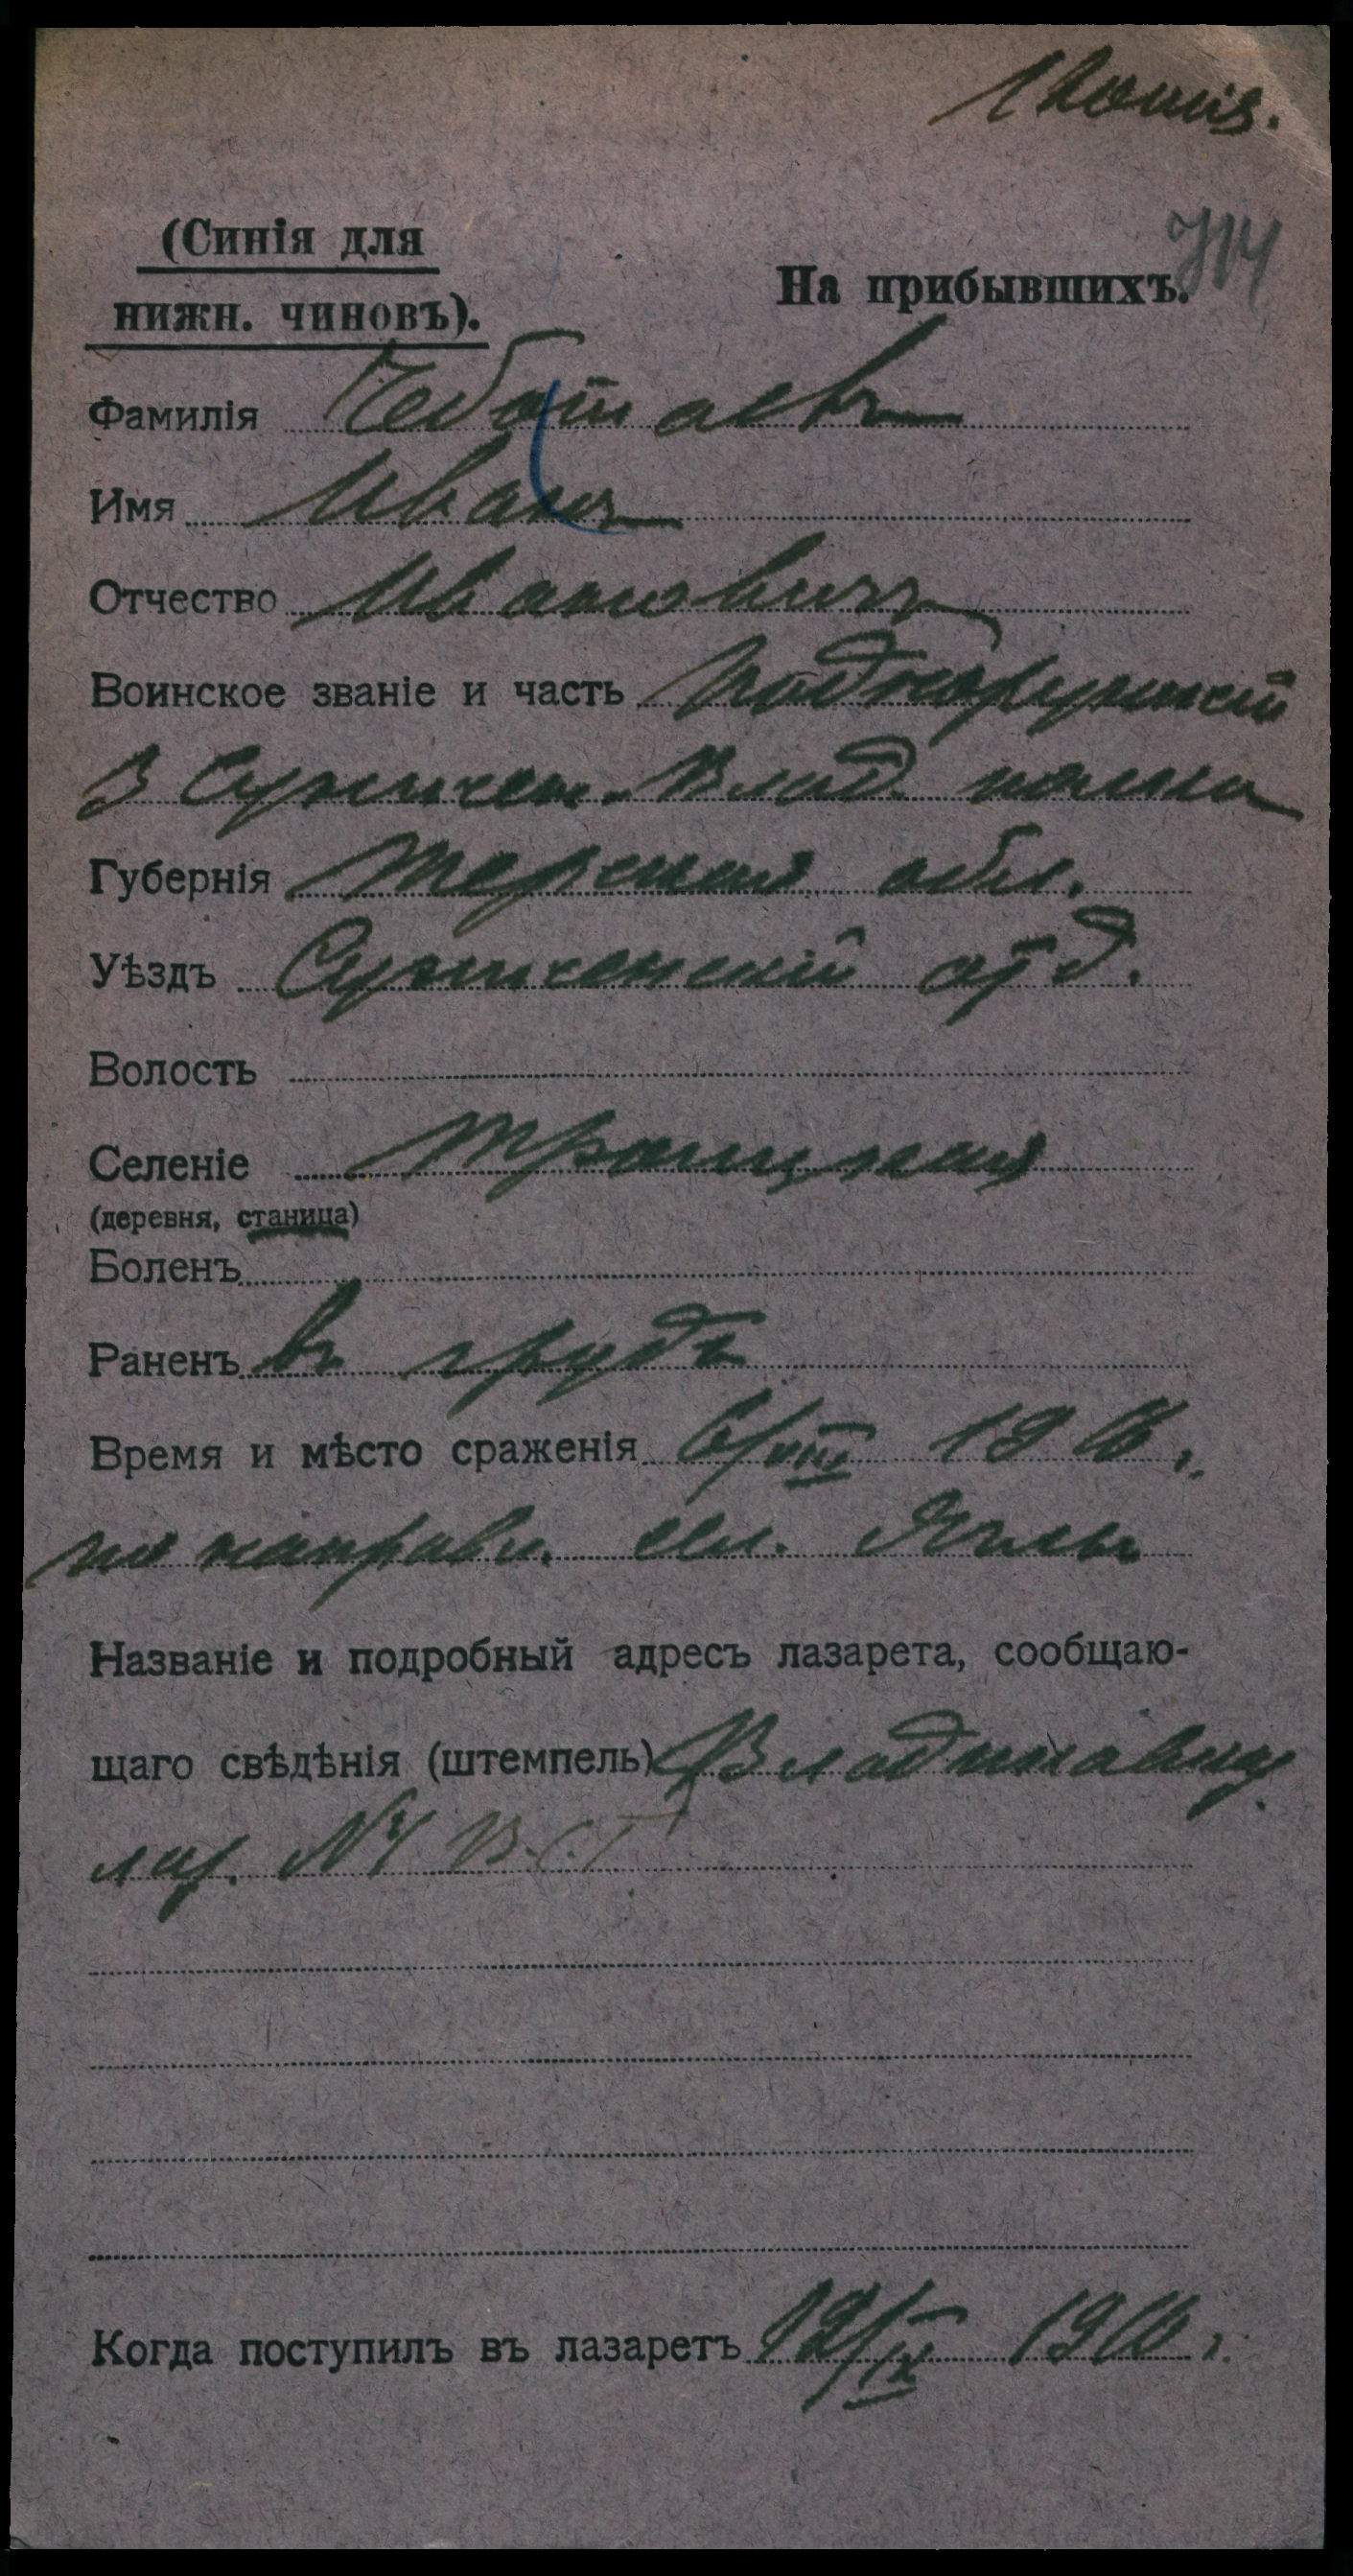 1 копія.
714
(Синія для
нижн. чиновъ).
На прибывшихъ.
Фамилія Чеботаевъ
Имя Иванъ
Отчество Ивановичъ
Воинское званіе и часть подхорунжій
3 Сунженск.-Влад. полка
Губернія Терская обл.
Уѣздъ Сунженскій отд.
Волость
Селеніе Троицкая
(деревня, станица)
Боленъ
Раненъ въ грудь
Время и мѣсто сраженія 6/VIII 1916 г.
по направл. сел.
Названіе и подробный адресъ лазарета, сообщаю-
щаго свѣдѣнія (штемпель) Владикавказ.
лаз. №1 В.С.Г.
Когда поступилъ въ лазаретъ 12/IX 1916 г.